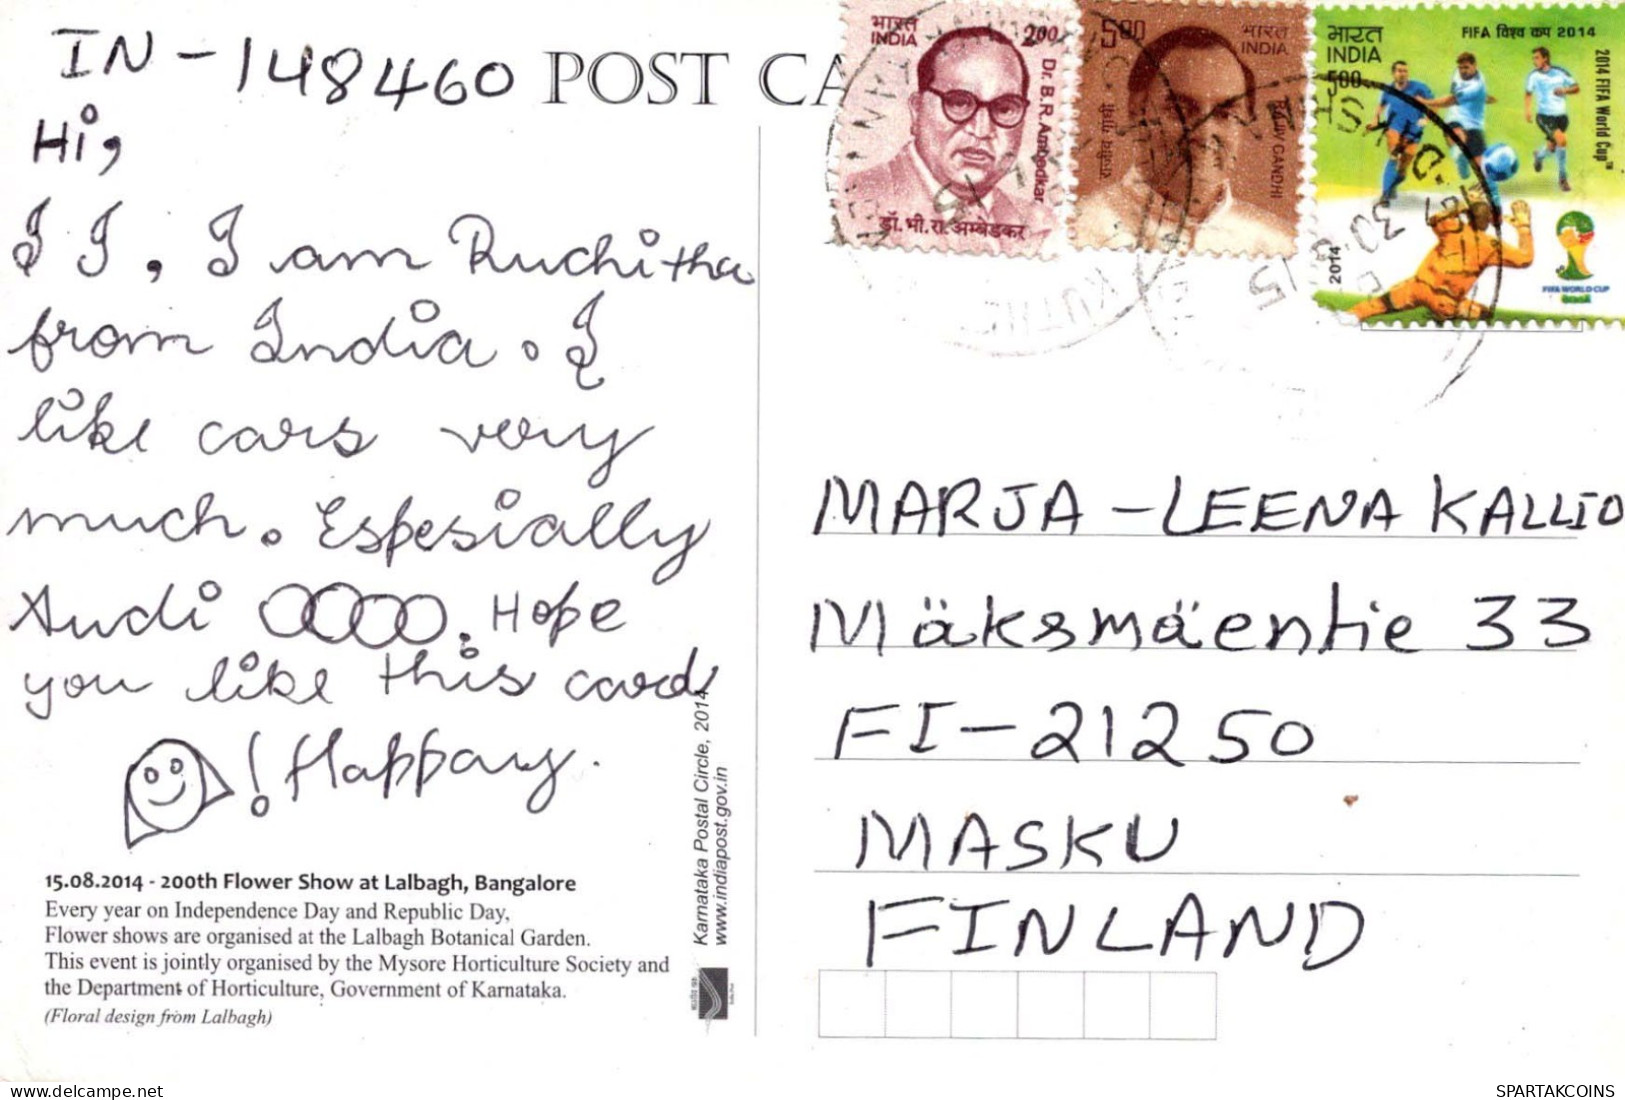 IN-148460
POST CA
Hi,
I I, I am Ruchitha
from India. I
like cars very
much. Espesially
Audi OOOO. Hope
you like this card
! Happay.
15.08.2014 - 200th Flower Show at Lalbagh, Bangalore
Every year on Independence Day and Republic Day,
Flower shows are organised at the Lalbagh Botanical Garden.
This event is jointly organised by the Mysore Horticulture Society and
the Department of Horticulture, Government of Karnataka.
(Floral design from Lalbagh)
Karnataka Postal Circle, 2014
www.indiapost.gov.in
भारत
INDIA
200
Dr. B.R. Ambedkar
डॉ. भी. रा. अम्बेडकर
500
भारत
INDIA
RAJIV GANDHI
राजीव गांधी
भारत
INDIA
500
FIFA विश्व कप 2014
2014 FIFA World Cup™
2014
FIFA WORLD CUP
MARJA-LEENA KALLIO
Mäksmäentie 33
FI-21250
MASKU
FINLAND
www.delcampe.net
SPARTAKCOINS